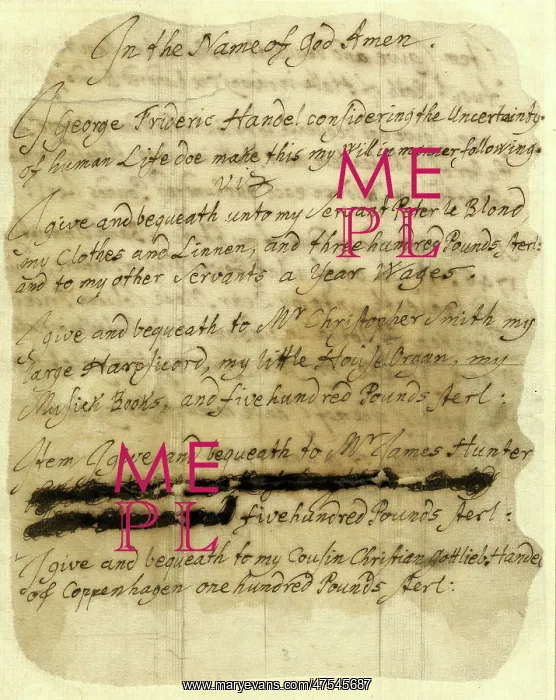 In the Name of God Amen.
I George Frideric Handel considering the Uncertainty
of human Life doe make this my Will in manner following
viz
I give and bequeath unto my Servant Peter le Blond
my Clothes and Linnen, and three hundred Pounds sterl:
and to my other Servants a Year Wages.
I give and bequeath to Mr Christopher Smith my
large Harpsicord, my little House Organ, my
Musick Books, and five hundred Pounds sterl:
Item I give and bequeath to Mr James Hunter
five hundred Pounds sterl:
I give and bequeath to my Cousin Christian Gottlieb Handel
of Coppenhagen one hundred Pounds sterl:
ME
PL
ME
PL
www.maryevans.com/47545687